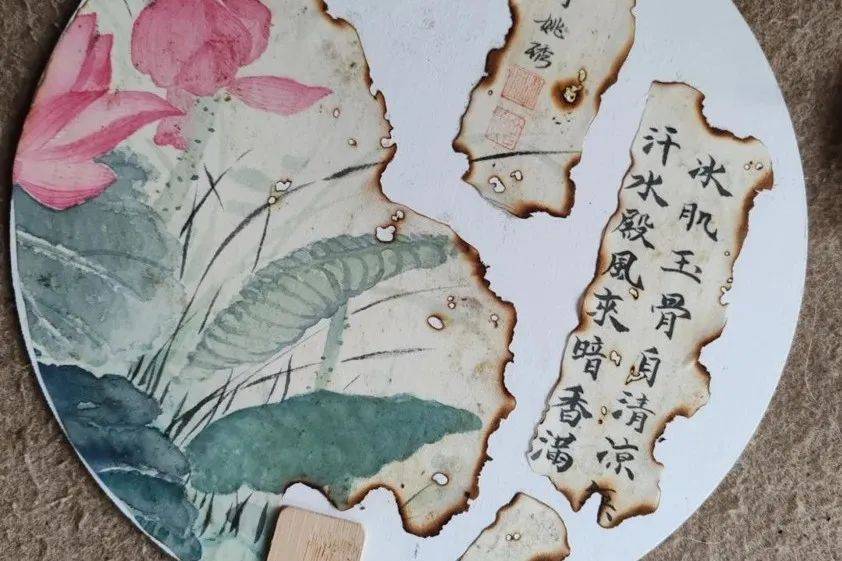 冰肌玉骨自清凉
汗水殿風來暗香滿
姚